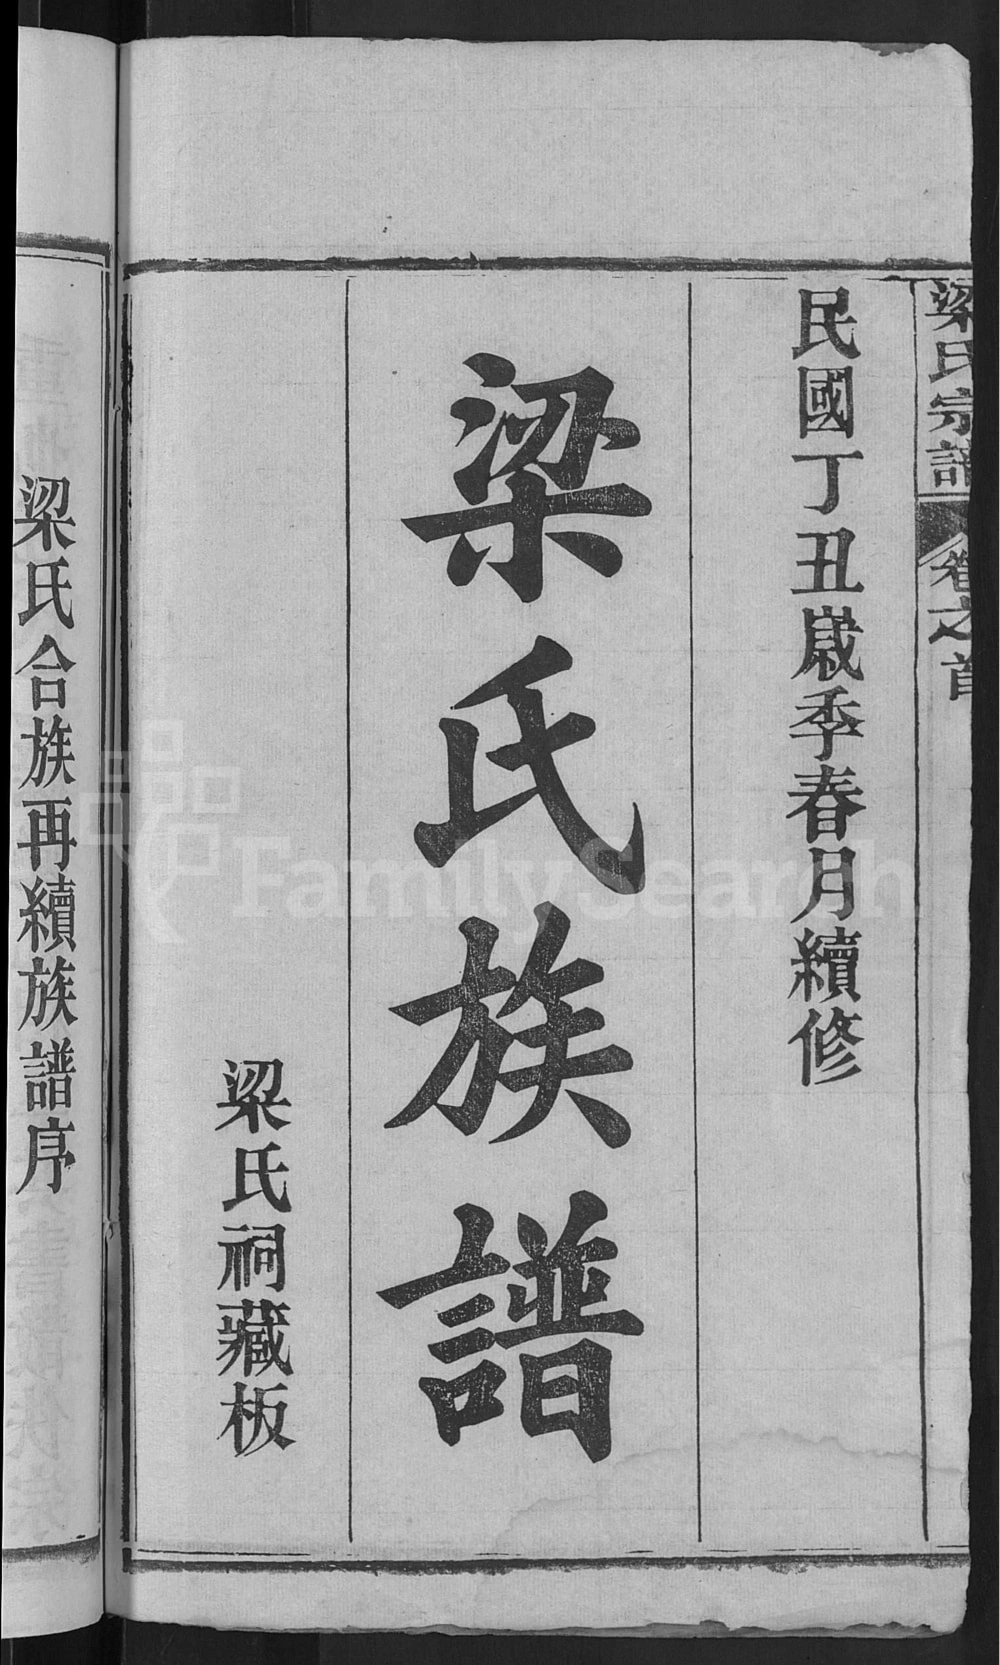 梁氏宗譜
卷之首
民國丁丑歲季春月續修
梁氏族譜
梁氏祠藏板
梁氏合族再續族譜序
FamilySearch